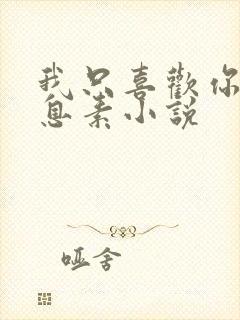 我只喜歡你
息素小說
哑舍